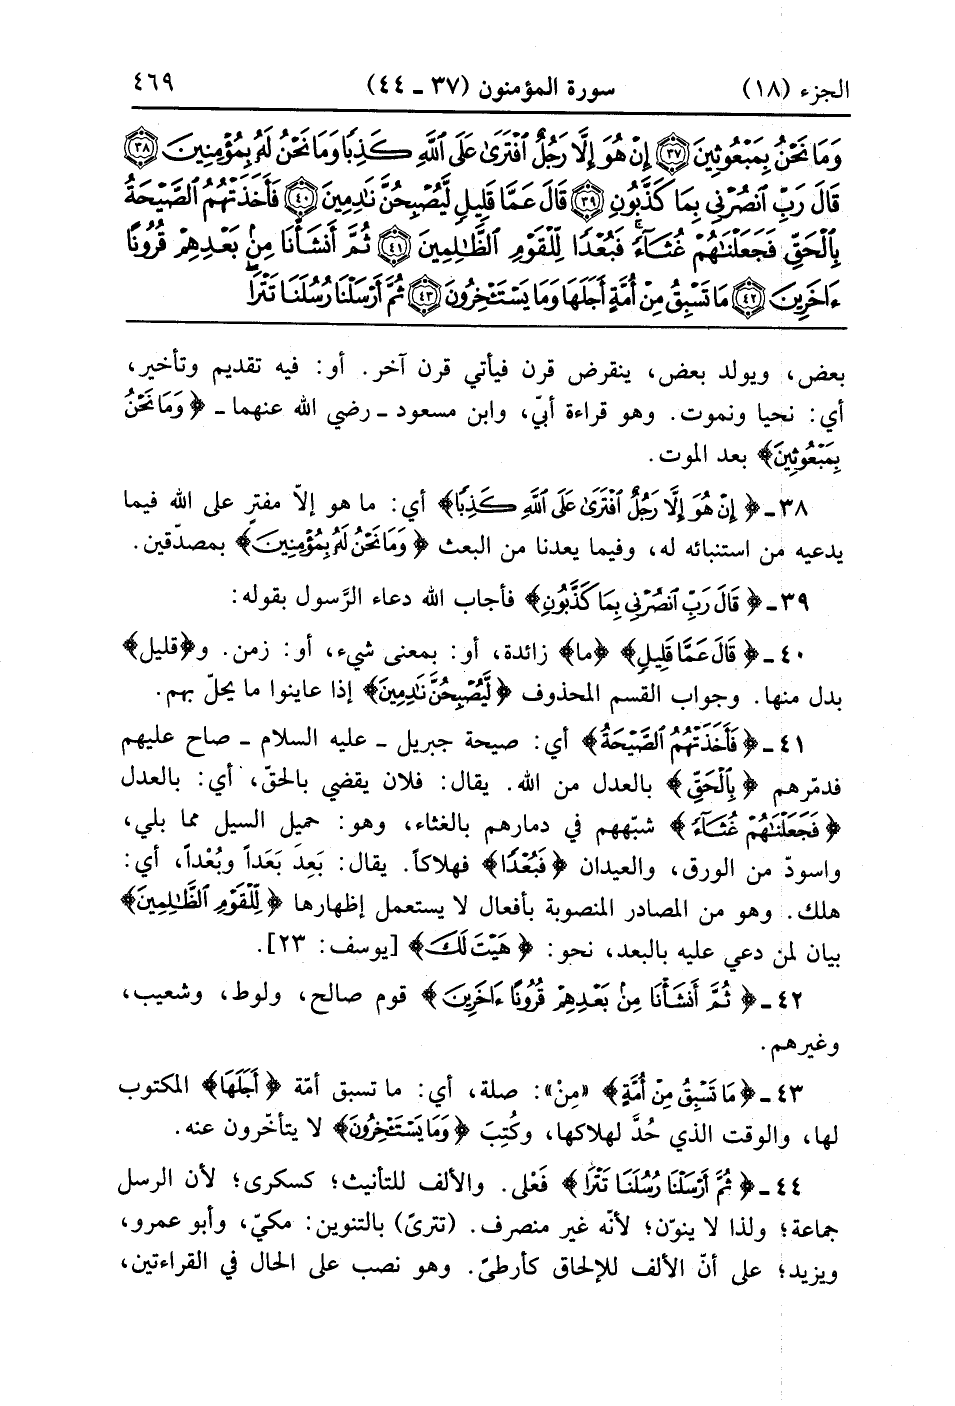 الجزء (١٨) سورة المؤمنون (٣٧ ـ ٤٤) ٤٦٩
وَمَا نَحْنُ بِمَبْعُوثِينَ ﴿٣٧﴾ إِنْ هُوَ إِلَّا رَجُلٌ ٱفْتَرَىٰ عَلَى ٱللَّهِ كَذِبًا وَمَا نَحْنُ لَهُۥ بِمُؤْمِنِينَ ﴿٣٨﴾
قَالَ رَبِّ ٱنصُرْنِى بِمَا كَذَّبُونِ ﴿٣٩﴾ قَالَ عَمَّا قَلِيلٍ لَّيُصْبِحُنَّ نَٰدِمِينَ ﴿٤٠﴾ فَأَخَذَتْهُمُ ٱلصَّيْحَةُ
بِٱلْحَقِّ فَجَعَلْنَٰهُمْ غُثَآءً ۚ فَبُعْدًا لِّلْقَوْمِ ٱلظَّٰلِمِينَ ﴿٤١﴾ ثُمَّ أَنشَأْنَا مِنۢ بَعْدِهِمْ قُرُونًا
ءَاخَرِينَ ﴿٤٢﴾ مَا تَسْبِقُ مِنْ أُمَّةٍ أَجَلَهَا وَمَا يَسْتَـْٔخِرُونَ ﴿٤٣﴾ ثُمَّ أَرْسَلْنَا رُسُلَنَا تَتْرَا ۖ
بعض، ويولد بعض، ينقرض قرن فيأتي قرن آخر. أو: فيه تقديم وتأخير،
أي: نحيا ونموت. وهو قراءة أبيّ، وابن مسعود ـ رضي الله عنهما ـ ﴿وَمَا نَحْنُ
بِمَبْعُوثِينَ﴾ بعد الموت.
٣٨ ـ ﴿إِنْ هُوَ إِلَّا رَجُلٌ ٱفْتَرَىٰ عَلَى ٱللَّهِ كَذِبًا﴾ أي: ما هو إلاّ مفترٍ على الله فيما
يدعيه من استنبائه له، وفيما يعدنا من البعث ﴿وَمَا نَحْنُ لَهُۥ بِمُؤْمِنِينَ﴾ بمصدّقين.
٣٩ ـ ﴿قَالَ رَبِّ ٱنصُرْنِى بِمَا كَذَّبُونِ﴾ فأجاب الله دعاء الرَّسول بقوله:
٤٠ ـ ﴿قَالَ عَمَّا قَلِيلٍ﴾ ﴿ما﴾ زائدة، أو: بمعنى شيء، أو: زمن. و﴿قليل﴾
بدل منها. وجواب القسم المحذوف ﴿لَّيُصْبِحُنَّ نَٰدِمِينَ﴾ إذا عاينوا ما يحلّ بهم.
٤١ ـ ﴿فَأَخَذَتْهُمُ ٱلصَّيْحَةُ﴾ أي: صيحة جبريل ـ عليه السلام ـ صاح عليهم
فدمّرهم ﴿بِٱلْحَقِّ﴾ بالعدل من الله. يقال: فلان يقضي بالحقّ، أي: بالعدل
﴿فَجَعَلْنَٰهُمْ غُثَآءً﴾ شبّههم في دمارهم بالغثاء، وهو: حميل السيل مما بلي،
واسودّ من الورق، والعيدان ﴿فَبُعْدًا﴾ فهلاكاً. يقال: بَعِدَ بَعَداً وبُعْداً، أي:
هلك. وهو من المصادر المنصوبة بأفعال لا يستعمل إظهارها ﴿لِّلْقَوْمِ ٱلظَّٰلِمِينَ﴾
بيان لمن دعي عليه بالبعد، نحو: ﴿هَيْتَ لَكَ﴾ [يوسف: ٢٣].
٤٢ ـ ﴿ثُمَّ أَنشَأْنَا مِنۢ بَعْدِهِمْ قُرُونًا ءَاخَرِينَ﴾ قوم صالح، ولوط، وشعيب،
وغيرهم.
٤٣ ـ ﴿مَا تَسْبِقُ مِنْ أُمَّةٍ﴾ «مِنْ»: صلة، أي: ما تسبق أمّة ﴿أَجَلَهَا﴾ المكتوب
لها، والوقت الذي حُدَّ لهلاكها، وكُتِبَ ﴿وَمَا يَسْتَـْٔخِرُونَ﴾ لا يتأخّرون عنه.
٤٤ ـ ﴿ثُمَّ أَرْسَلْنَا رُسُلَنَا تَتْرَا﴾ فَعْلى. والألف للتأنيث؛ كسكرى؛ لأن الرسل
جماعة؛ ولذا لا ينوّن؛ لأنّه غير منصرف. (تترىً) بالتنوين: مكيّ، وأبو عمرو،
ويزيد؛ على أنّ الألف للإلحاق كأرطىً. وهو نصب على الحال في القراءتين،